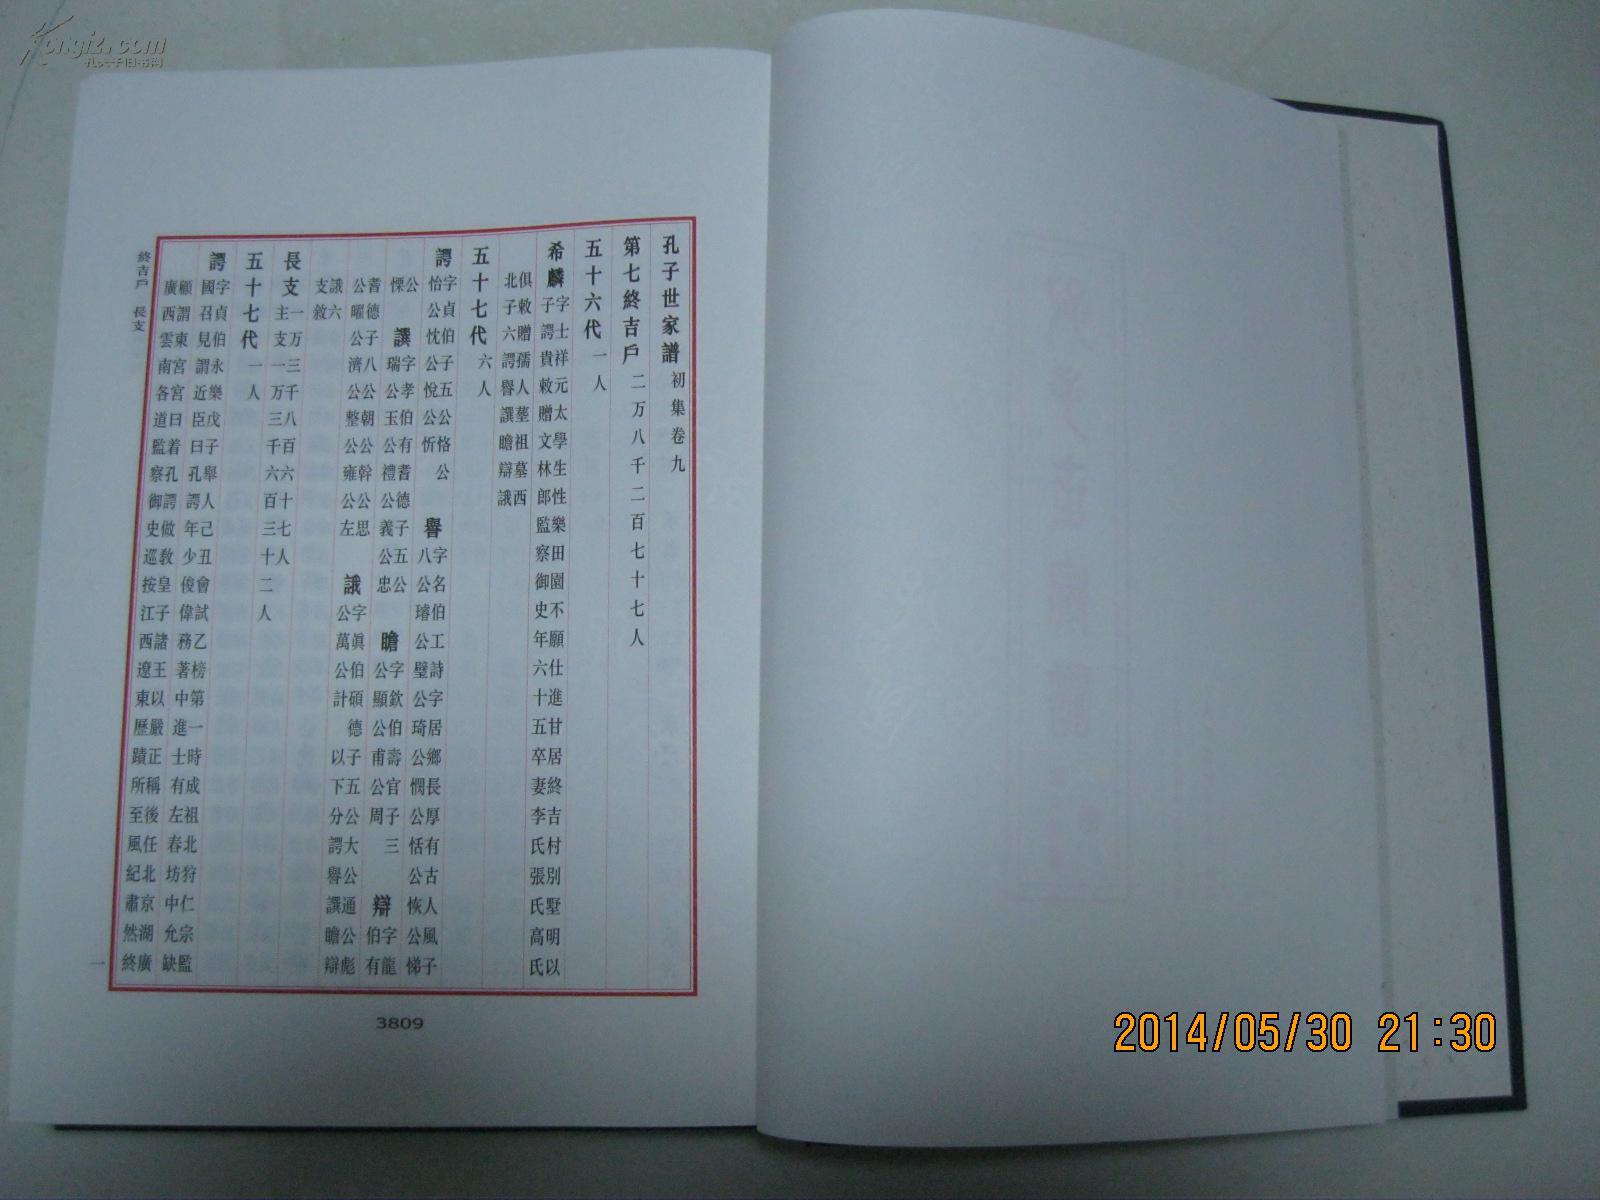 孔子世家譜 初集卷九
第七終吉戶 二万八千二百七十七人
五十六代 一人
希麟 字士祥元太學生性樂田園不願仕進甘居終吉村別墅明以
子諤貴敕贈文林郎監察御史年六十五卒妻李氏張氏高氏
俱敕贈孺人塋祖墓西
北子六諤譽譔瞻辯誐
五十七代 六人
諤 字貞伯子五公恪公
怡公忱公悅公忻
譽 字名伯工詩字居鄉長厚有古人風子
八公璿公璧公琦公憫公恬公恢公悌
公
慄
譔 字孝伯有耆德子五公
瑞公玉公禮公義公忠
瞻 字欽伯壽官子三
公顯公甫公周
辯 字龍
伯有
耆德子八公朝公幹公思
公曜公濟公整公雍公左
誐 字眞伯碩德子五公大公通公彪
公萬公計以下分諤譽譔瞻辯
誐六
支敘
長支 一万三千八百六十七人
主支一万三千六百三十二人
五十七代 一人
諤 字貞伯永樂戊子舉人己丑會試乙榜第一時成祖北狩仁宗監
國召見謂近臣曰孔諤年少俊偉務著中進士有左春坊中允缺
顧謂東宮宮曰着孔諤做教皇子諸王以嚴正稱後任北京湖廣
廣西雲南各道監察御史巡按江西遼東歷蹟所至風紀肅然終
終吉戶 長支
一
3809
Kongfz.com
孔夫子旧书网
2014/05/30 21:30